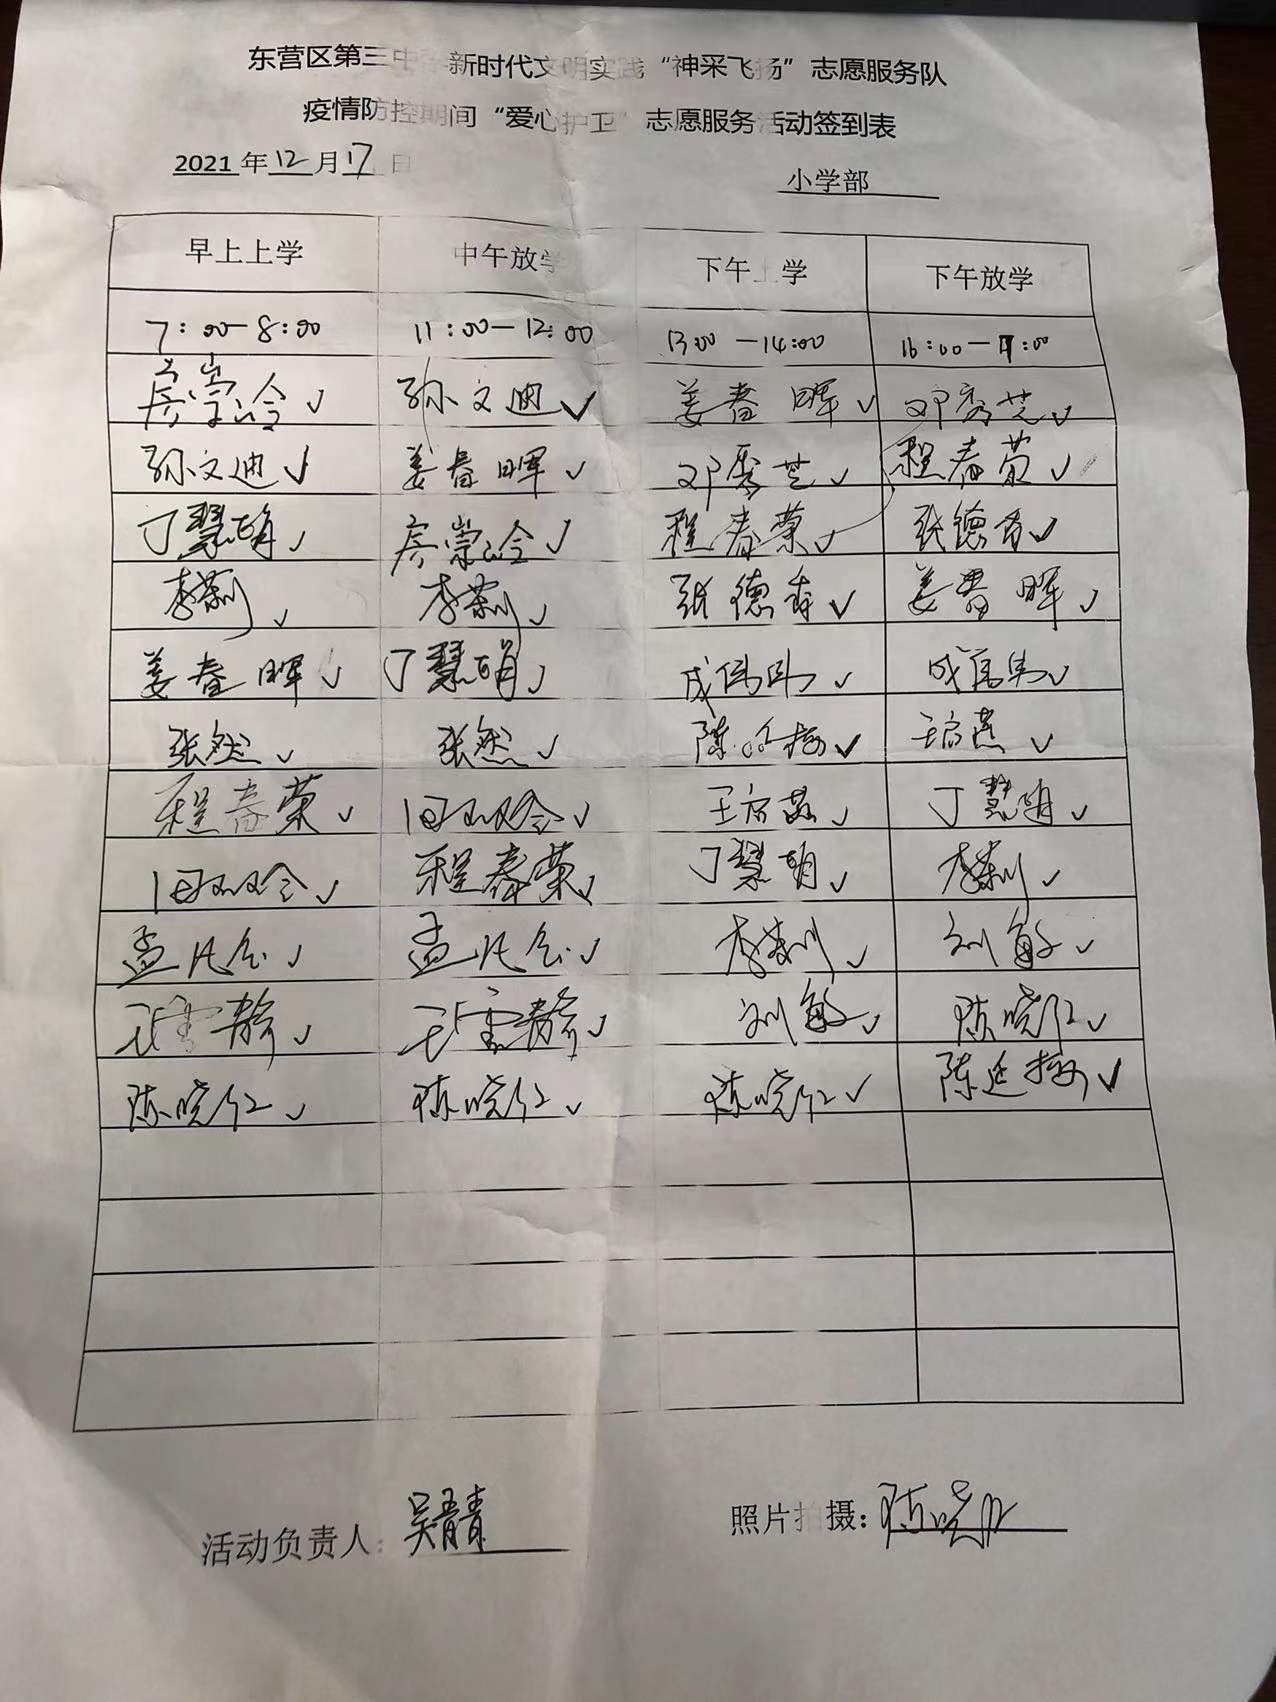 东营区第三中学新时代文明实践“神采飞扬”志愿服务队
疫情防控期间“爱心护卫”志愿服务活动签到表
2021年12月17日
小学部
早上上学 中午放学 下午上学 下午放学
7:00-8:00 11:00-12:00 13:00-14:00 16:00-17:00
房崇玲✓ 孙文迪✓ 姜春晖✓ 邓秀芝✓
孙文迪✓ 姜春晖✓ 邓秀芝✓ 程春荣✓
丁慧娟✓ 房崇玲✓ 程春荣✓ 张德香✓
李荣利✓ 李荣利✓ 张德香✓ 姜春晖✓
姜春晖✓ 丁慧娟✓ 成伟伟✓ 成伟伟✓
张然✓ 张然✓ 陈 梅✓ 王 燕✓
程春荣✓ ✓ 王 燕✓ 丁慧娟✓
✓ 程春荣✓ 丁慧娟✓ 李荣利✓
孟凡 ✓ 孟凡 ✓ 李荣利✓ 刘敏✓
雪静✓ 雪静✓ 刘敏✓ 陈晓红✓
陈晓红✓ 陈晓红✓ 陈晓红✓ 陈廷梅✓
活动负责人:吴青青
照片拍摄:陈晓红